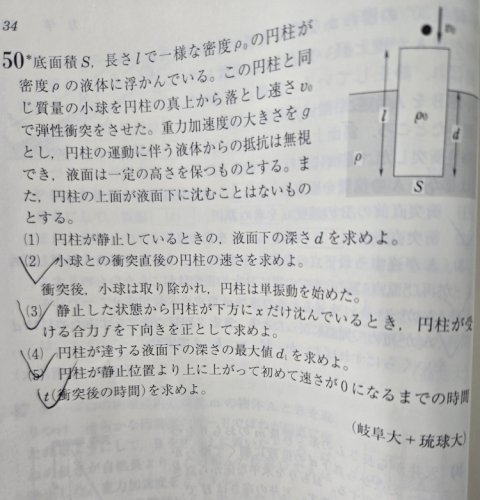 34
50*底面積S，長さlで一様な密度ρ₀の円柱が
密度ρの液体に浮かんでいる。この円柱と同
じ質量の小球を円柱の真上から落とし速さv₀
で弾性衝突をさせた。重力加速度の大きさをg
とし，円柱の運動に伴う液体からの抵抗は無視
でき，液面は一定の高さを保つものとする。ま
た，円柱の上面が液面下に沈むことはないもの
とする。
v₀
l
ρ₀
d
ρ
S
(1) 円柱が静止しているときの，液面下の深さdを求めよ。
(2) 小球との衝突直後の円柱の速さを求めよ。
衝突後，小球は取り除かれ，円柱は単振動を始めた。
(3) 静止した状態から円柱が下方にxだけ沈んでいるとき，円柱が受
ける合力fを下向きを正として求めよ。
(4) 円柱が達する液面下の深さの最大値d₁を求めよ。
(5) 円柱が静止位置より上に上がって初めて速さが0になるまでの時間
t(衝突後の時間)を求めよ。
(岐阜大＋琉球大)